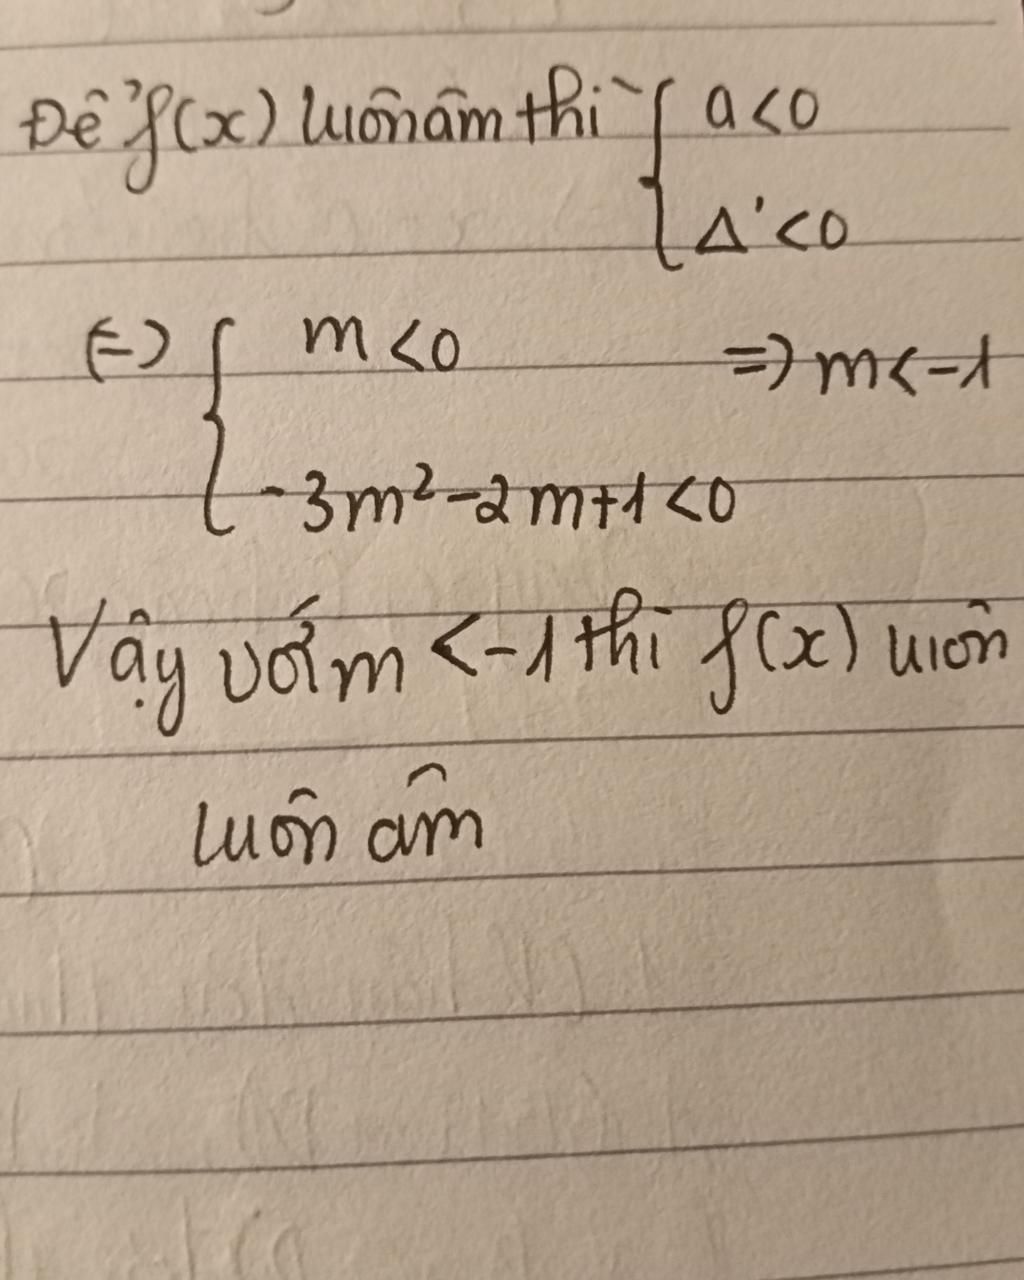 Để f(x) luôn âm thì { a<0
Δ'<0
(=) { m<0 => m<-1
-3m²-2m+1<0
Vậy với m <-1 thì f(x) luôn
luôn âm